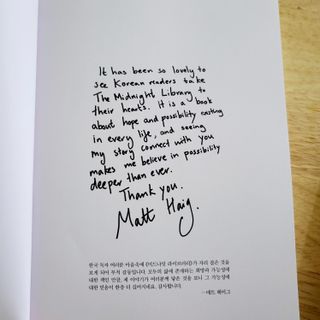 It has been so lovely to
see Korean readers take
The Midnight Library to
their hearts. It is a book
about hope and possibility existing
in every life, and seeing
my story connect with you
makes me believe in possibility
deeper than ever.
Thank you.
Matt Haig.
한국 독자 여러분 마음속에 《미드나잇 라이브러리》가 자리 잡은 것을
보게 되어 무척 감동입니다. 모두의 삶에 존재하는 희망과 가능성에
대한 책인 만큼, 제 이야기가 여러분께 닿은 것을 보니 그 가능성에
대한 믿음이 한층 더 깊어지네요. 감사합니다.
—매트 헤이그